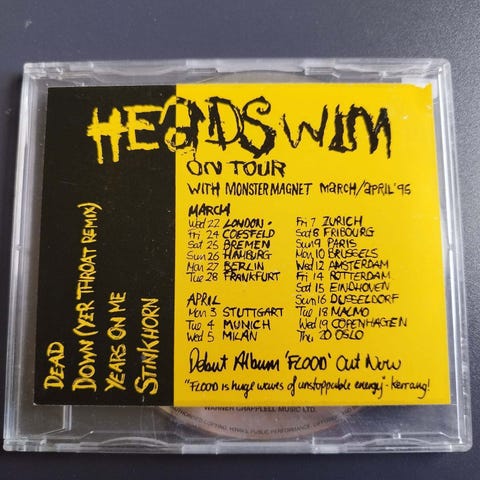 HEADSWIM
ON TOUR
WITH MONSTER MAGNET MARCH/APRIL '95
MARCH
Wed 22 LONDON
Fri 24 COESFELD
Sat 25 BREMEN
Sun 26 HAMBURG
Mon 27 BERLIN
Tue 28 FRANKFURT
APRIL
Mon 3 STUTTGART
Tue 4 MUNICH
Wed 5 MILAN
Fri 7 ZURICH
Sat 8 FRIBOURG
Sun 9 PARIS
Mon 10 BRUSSELS
Wed 12 AMSTERDAM
Fri 14 ROTTERDAM
Sat 15 EINDHOVEN
Sun 16 DUSSELDORF
Tue 18 MALMO
Wed 19 COPENHAGEN
Thu 20 OSLO
Debut Album 'FLOOD' Out Now
"FLOOD is huge waves of unstoppable energy" - kerrang!
DEAD
DOWN (YER THROAT REMIX)
YEARS ON ME
STINKHORN
WARNER CHAPPELL MUSIC LTD.
COPYING, HIRING, PUBLIC PERFORMANCE,